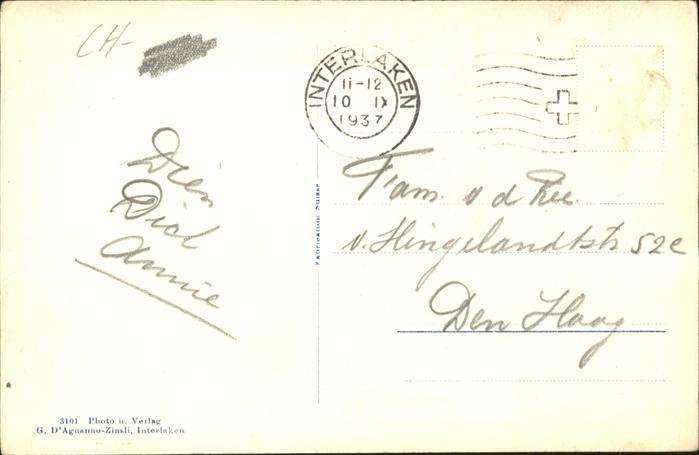 CH-
INTERLAKEN
11-12
10 IX
1937
Dien
Dick
Annie
Fam. v d Zee
v. Hingelandtstr 52e
Den Haag
Fabrication Suisse
3101 Photo u. Verlag
G. D'Aguanno-Zinsli, Interlaken